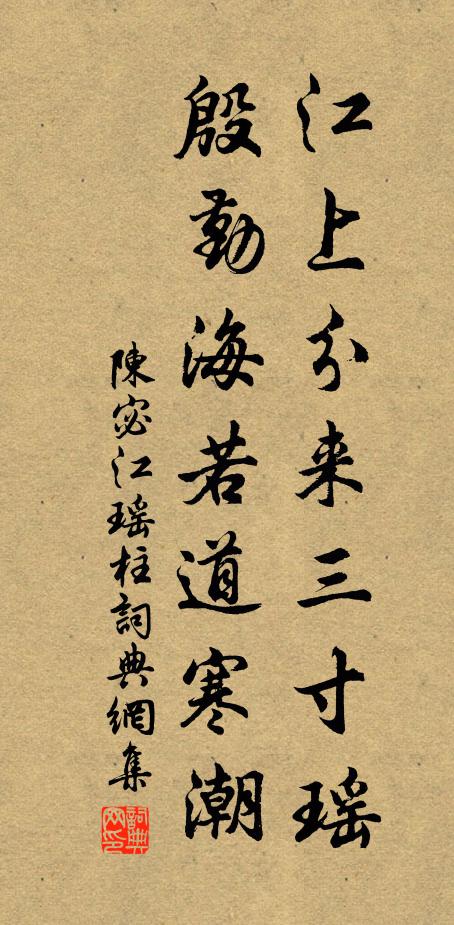 江上分来三寸瑶
殷勤海若道寒潮
陳宓江瑶柱詞典網集
詞典网印